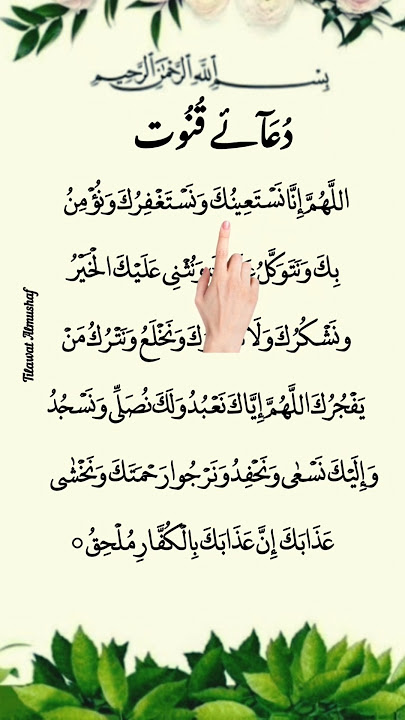 بِسْمِ اللّٰهِ الرَّحْمٰنِ الرَّحِيْمِ
دُعَآئے قُنُوت
اللَّهُمَّ إِنَّا نَسْتَعِينُكَ وَنَسْتَغْفِرُكَ وَنُؤْمِنُ
بِكَ وَنَتَوَكَّلُ وَنُثْنِى عَلَيْكَ الْخَيْرُ
ونَشْكُرُكَ وَلَا وَنَخْلَعُ وَنَتْرُكُ مَنْ
يَفْجُرُكَ اللَّهُمَّ إِيَّاكَ نَعْبُدُ وَلَكَ نُصَلِّى وَنَسْجُدُ
وَإِلَيْكَ نَسْعٰى وَنَحْفِدُ وَنَرْجُوا رَحْمَتَكَ وَنَخْشٰى
عَذَابَكَ إِنَّ عَذَابَكَ بِالْكُفَّارِ مُلْحِقُ ○
Tilawat Almushaf